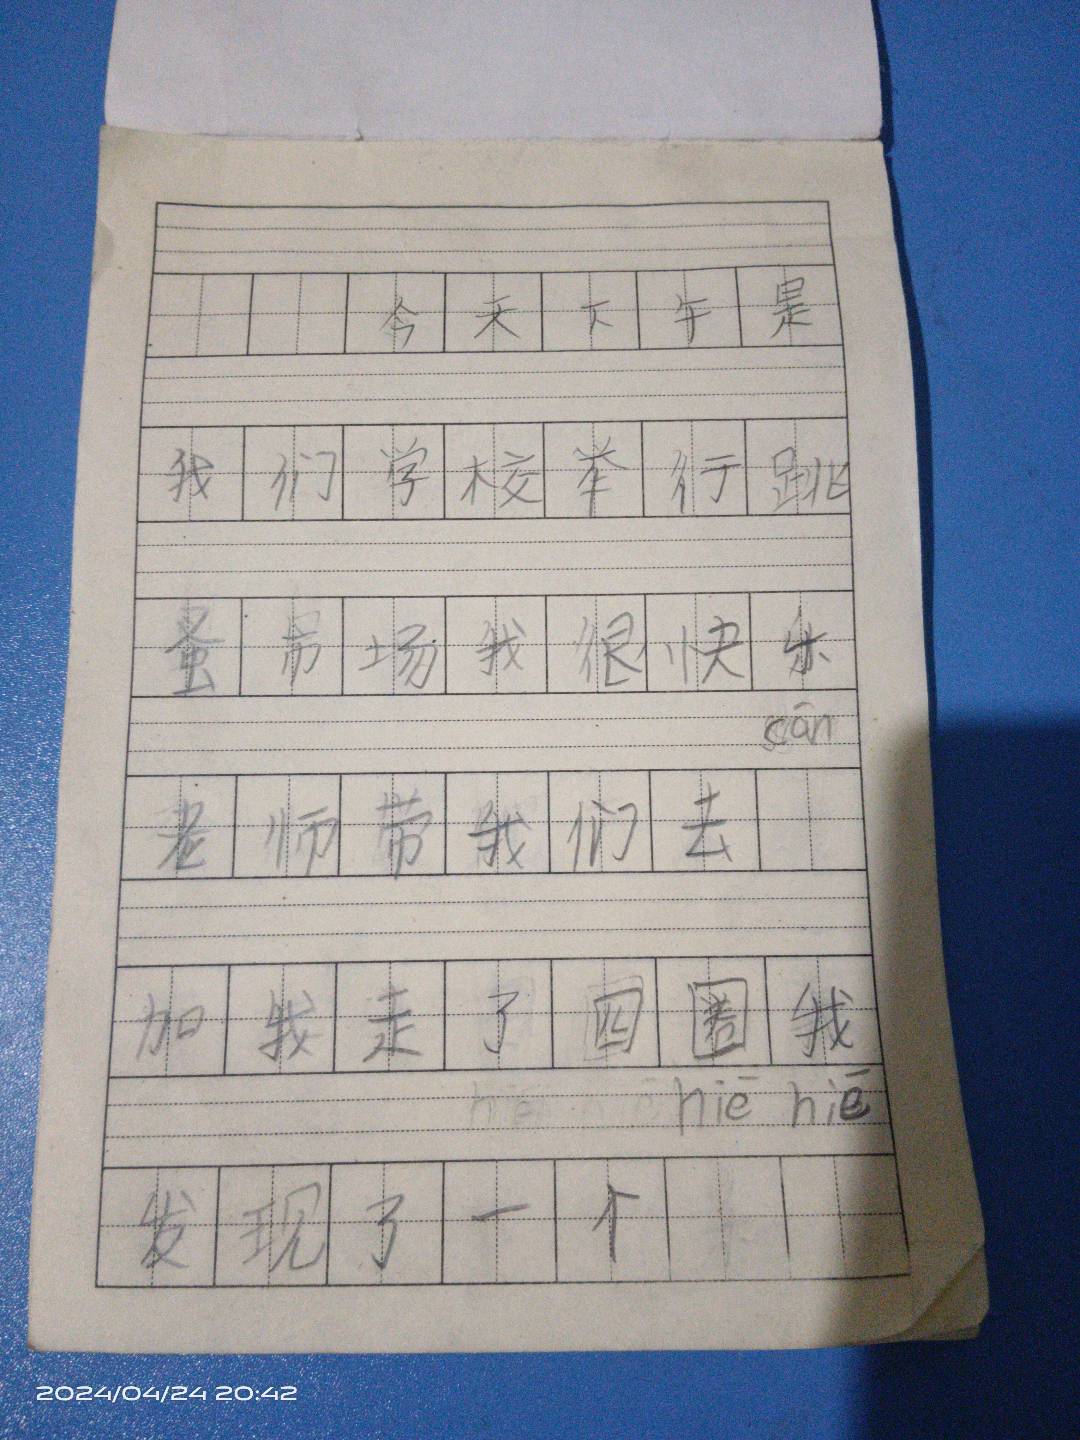 今天下午是
我们学校举行跳
蚤带场我很快乐
cān
老师带我们去
加我走了四圈我
niē niē
发现了一个
2024/04/24 20:42